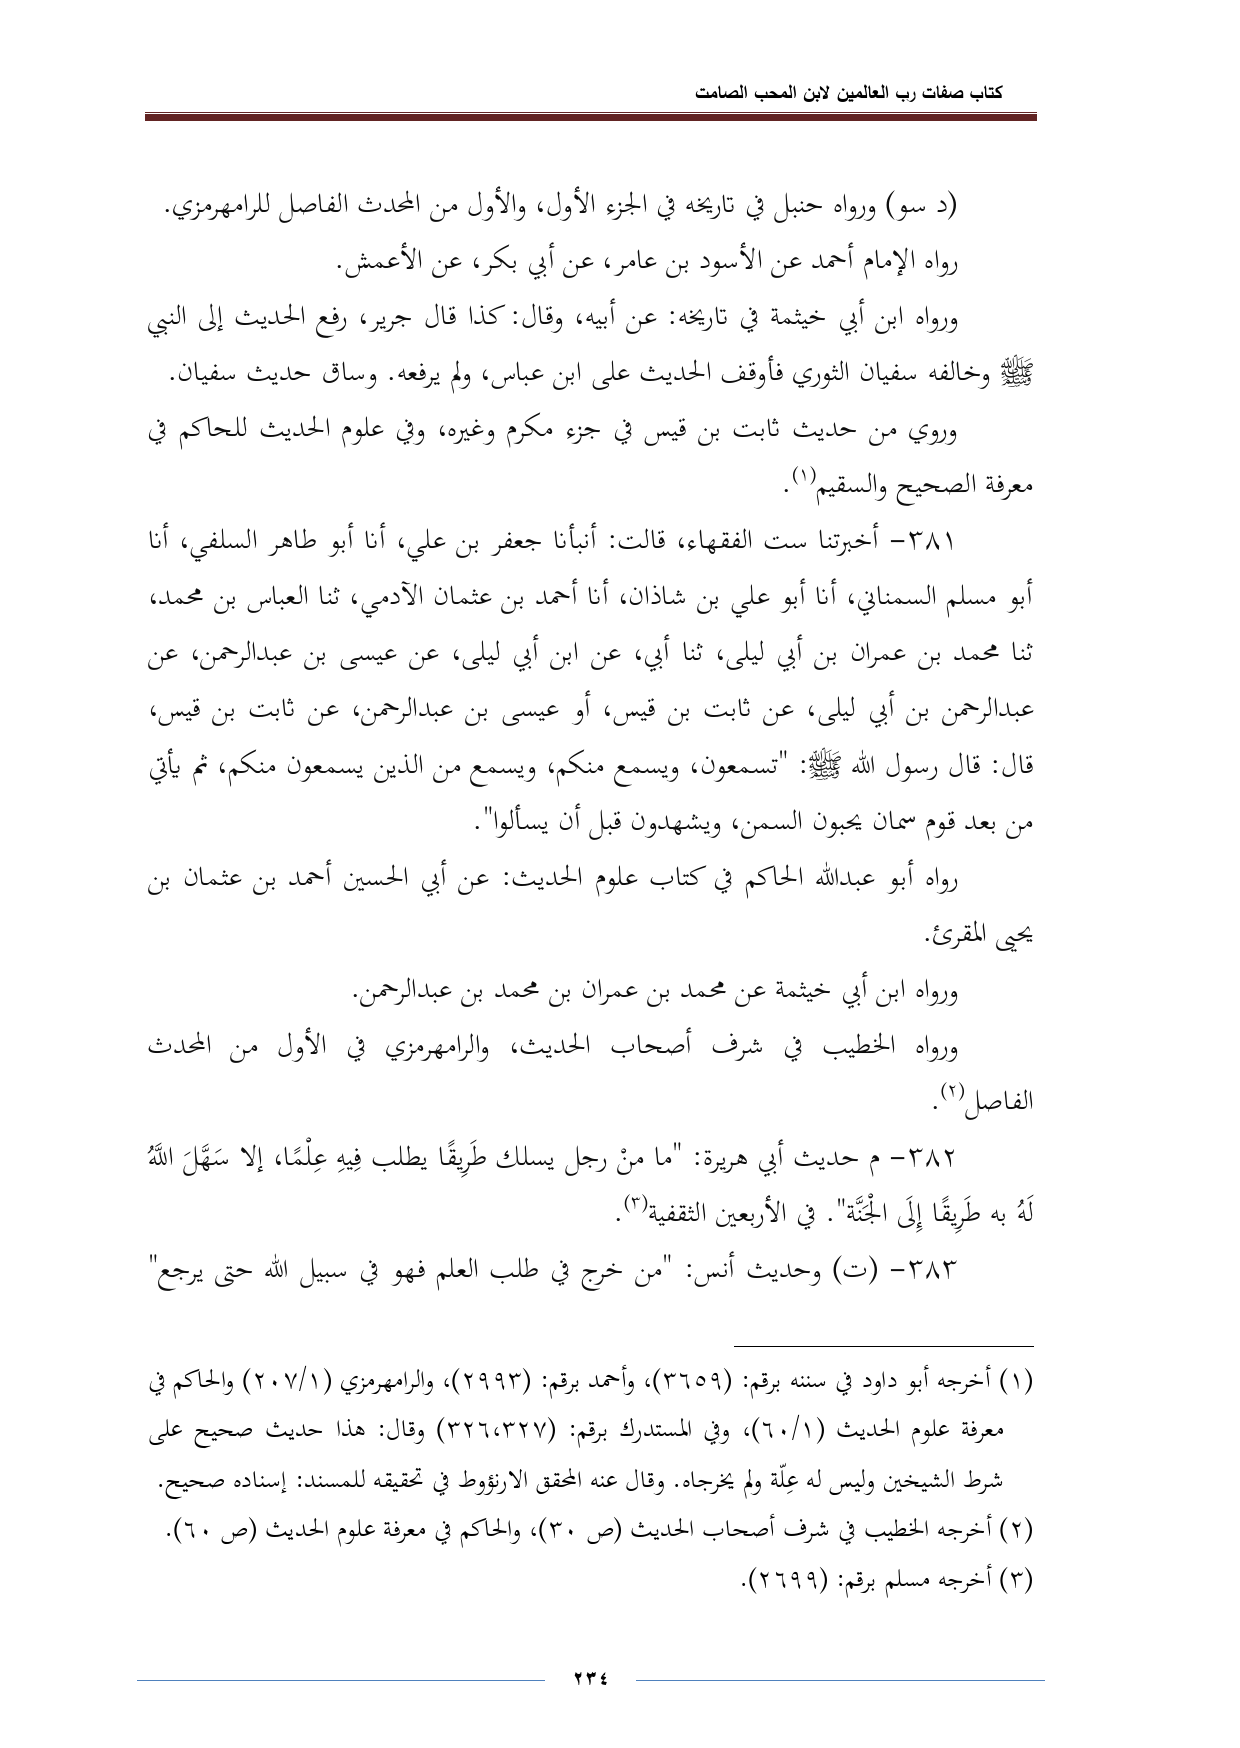 كتاب صفات رب العالمين لابن المحب الصامت
(د سو) ورواه حنبل في تاريخه في الجزء الأول، والأول من المحدث الفاصل للرامهرمزي.
رواه الإمام أحمد عن الأسود بن عامر، عن أبي بكر، عن الأعمش.
ورواه ابن أبي خيثمة في تاريخه: عن أبيه، وقال: كذا قال جرير، رفع الحديث إلى النبي
ﷺ وخالفه سفيان الثوري فأوقف الحديث على ابن عباس، ولم يرفعه. وساق حديث سفيان.
وروي من حديث ثابت بن قيس في جزء مكرم وغيره، وفي علوم الحديث للحاكم في
معرفة الصحيح والسقيم(١).
٣٨١- أخبرتنا ست الفقهاء، قالت: أنبأنا جعفر بن علي، أنا أبو طاهر السلفي، أنا
أبو مسلم السمناني، أنا أبو علي بن شاذان، أنا أحمد بن عثمان الآدمي، ثنا العباس بن محمد،
ثنا محمد بن عمران بن أبي ليلى، ثنا أبي، عن ابن أبي ليلى، عن عيسى بن عبدالرحمن، عن
عبدالرحمن بن أبي ليلى، عن ثابت بن قيس، أو عيسى بن عبدالرحمن، عن ثابت بن قيس،
قال: قال رسول الله ﷺ: "تسمعون، ويسمع منكم، ويسمع من الذين يسمعون منكم، ثم يأتي
من بعد قوم سمان يحبون السمن، ويشهدون قبل أن يسألوا".
رواه أبو عبدالله الحاكم في كتاب علوم الحديث: عن أبي الحسين أحمد بن عثمان بن
يحيى المقرئ.
ورواه ابن أبي خيثمة عن محمد بن عمران بن محمد بن عبدالرحمن.
ورواه الخطيب في شرف أصحاب الحديث، والرامهرمزي في الأول من المحدث
الفاصل(٢).
٣٨٢- م حديث أبي هريرة: "ما منْ رجل يسلك طَرِيقًا يطلب فِيهِ عِلْمًا، إلا سَهَّلَ اللَّهُ
لَهُ به طَرِيقًا إِلَى الْجَنَّة". في الأربعين الثقفية(٣).
٣٨٣- (ت) وحديث أنس: "من خرج في طلب العلم فهو في سبيل الله حتى يرجع"
(١) أخرجه أبو داود في سننه برقم: (٣٦٥٩)، وأحمد برقم: (٢٩٩٣)، والرامهرمزي (٢٠٧/١) والحاكم في
معرفة علوم الحديث (٦٠/١)، وفي المستدرك برقم: (٣٢٦،٣٢٧) وقال: هذا حديث صحيح على
شرط الشيخين وليس له عِلّة ولم يخرجاه. وقال عنه المحقق الارنؤوط في تحقيقه للمسند: إسناده صحيح.
(٢) أخرجه الخطيب في شرف أصحاب الحديث (ص ٣٠)، والحاكم في معرفة علوم الحديث (ص ٦٠).
(٣) أخرجه مسلم برقم: (٢٦٩٩).
٢٣٤